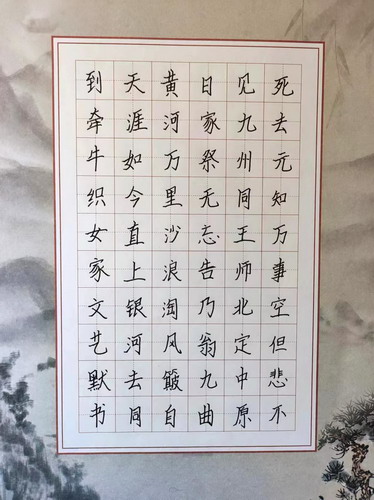 死去元知万事空但悲不
见九州同王师北定中原
日家祭无忘告乃翁九曲
黄河万里沙浪淘风簸自
天涯如今直上银河去同
到牵牛织女家文艺默书